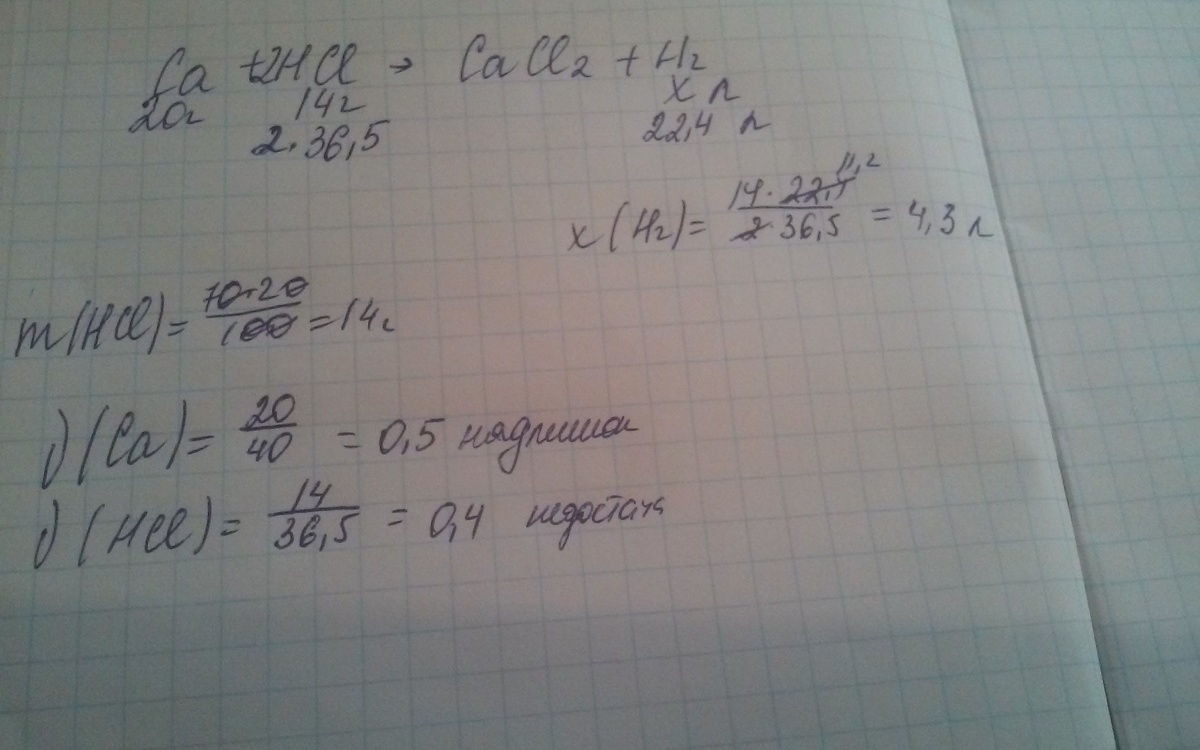 Ca + 2HCl → CaCl2 + H2
20г 14г x л
2·36,5 22,4 л
x (H2) = 14 · 22,4 11,2 / 2·36,5 = 4,3 л
m(HCl) = 70·20 / 100 = 14г
ν(Ca) = 20 / 40 = 0,5 надлишок
ν(HCl) = 14 / 36,5 = 0,4 недостача